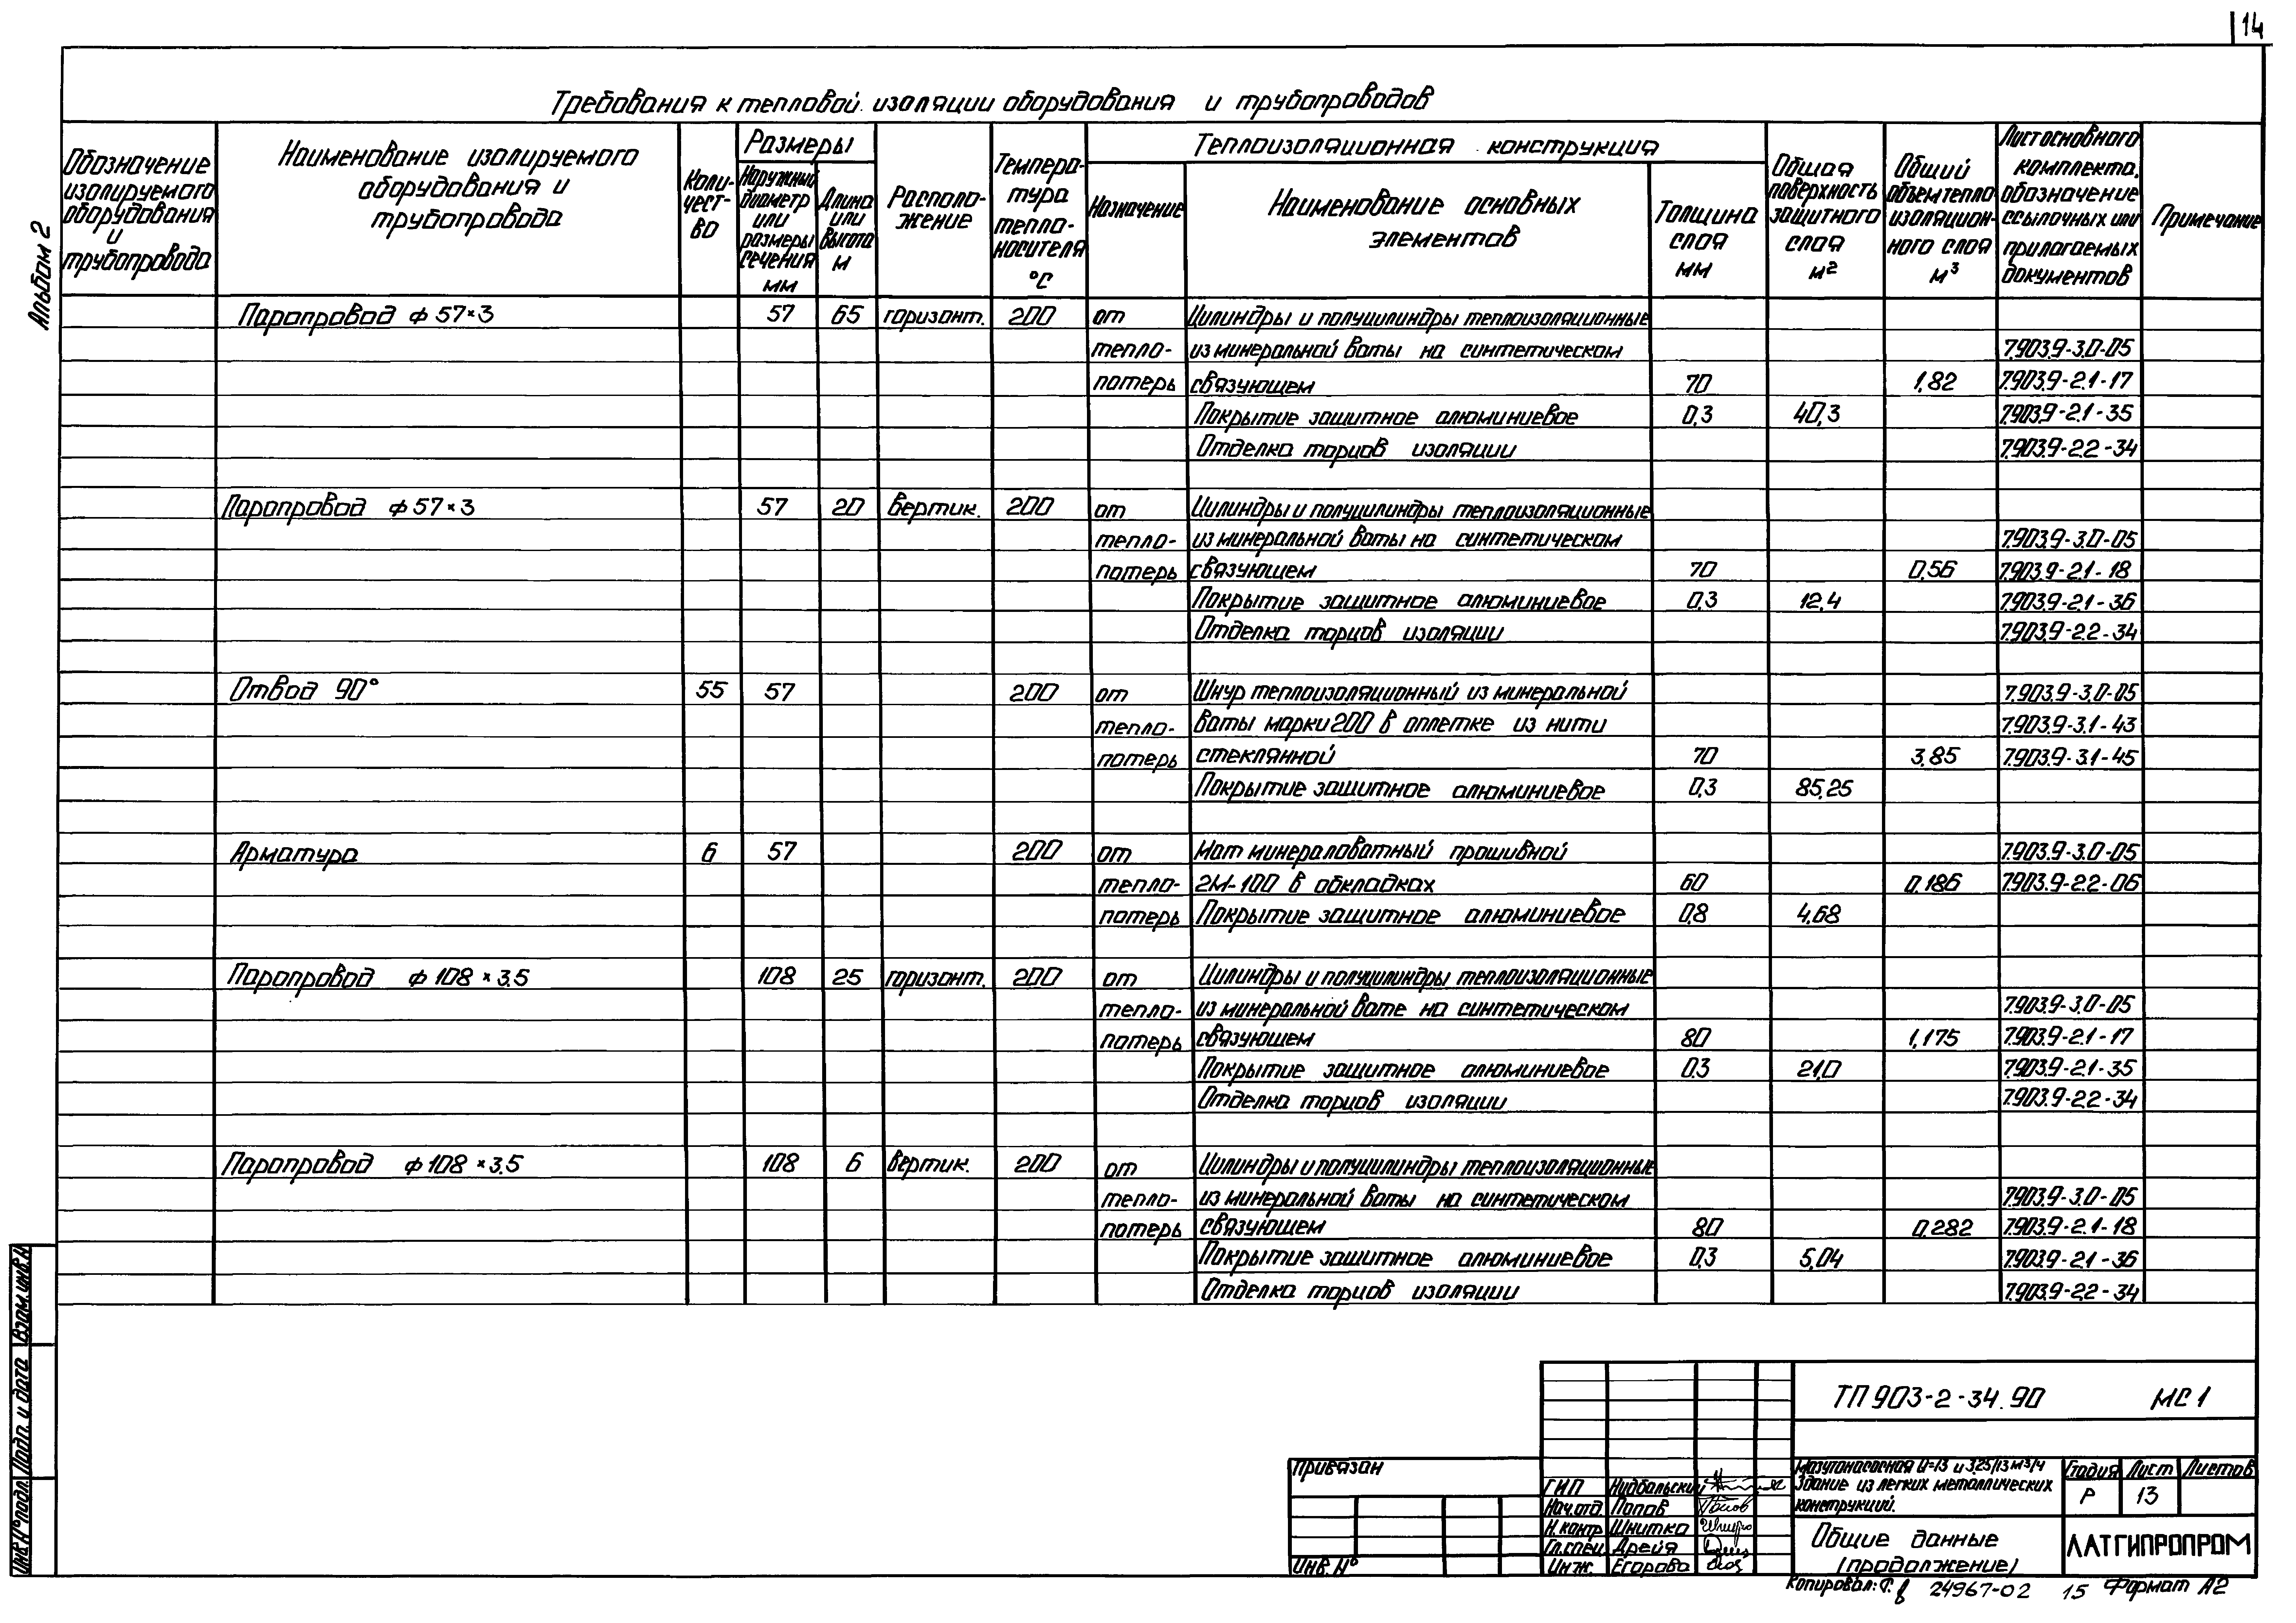 14
Альбом 2
Требования к тепловой изоляции оборудования и трубопроводов
Обозначение изолируемого оборудования и трубопровода
Наименование изолируемого оборудования и трубопровода
Коли-чест-во
Размеры
Наружный диаметр или размеры сечения мм
Длина или высота м
Располо-жение
Темпера-тура тепло-носителя °С
Теплоизоляционная конструкция
Назначение
Наименование основных элементов
Толщина слоя мм
Общая поверхность защитного слоя м²
Общий объем тепло изоляцион-ного слоя м³
Лист основного комплекта, обозначение ссылочных или прилагаемых документов
Примечание
Паропровод ф 57×3 57 65 горизонт. 200 от Цилиндры и полуцилиндры теплоизоляционные
тепло- из минеральной ваты на синтетическом 7.903.9-3.0-05
потерь связующем 70 1,82 7.903.9-2.1-17
Покрытие защитное алюминиевое 0,3 40,3 7.903.9-2.1-35
Отделка торцов изоляции 7.903.9-2.2-34
Паропровод ф 57×3 57 20 вертик. 200 от Цилиндры и полуцилиндры теплоизоляционные
тепло- из минеральной ваты на синтетическом 7.903.9-3.0-05
потерь связующем 70 0,56 7.903.9-2.1-18
Покрытие защитное алюминиевое 0,3 12,4 7.903.9-2.1-36
Отделка торцов изоляции 7.903.9-2.2-34
Отвод 90° 55 57 200 от Шнур теплоизоляционный из минеральной 7.903.9-3.0-05
тепло- ваты марки 200 в оплетке из нити 7.903.9-3.1-43
потерь стеклянной 70 3,85 7.903.9-3.1-45
Покрытие защитное алюминиевое 0,3 85,25
Арматура 6 57 200 от Мат минераловатный прошивной 7.903.9-3.0-05
тепло- 2М-100 в обкладках 60 0,186 7.903.9-2.2-06
потерь Покрытие защитное алюминиевое 0,8 4,68
Паропровод ф 108×3.5 108 25 горизонт. 200 от Цилиндры и полуцилиндры теплоизоляционные
тепло- из минеральной вате на синтетическом 7.903.9-3.0-05
потерь связующем 80 1,175 7.903.9-2.1-17
Покрытие защитное алюминиевое 0,3 21,0 7.903.9-2.1-35
Отделка торцов изоляции 7.903.9-2.2-34
Паропровод ф 108×3.5 108 6 вертик. 200 от Цилиндры и полуцилиндры теплоизоляционные
тепло- из минеральной ваты на синтетическом 7.903.9-3.0-05
потерь связующем 80 0,282 7.903.9-2.1-18
Покрытие защитное алюминиевое 0,3 5,04 7.903.9-2.1-36
Отделка торцов изоляции 7.903.9-2.2-34
Взам. инв. №
Подп. и дата
Инв. № подл.
Привязан
Инв. №
ТП 903-2-34.90 МС 1
ГИП Нидбальский
Нач.отд. Попов
Н. контр Шнитко
Гл.спец Дрейя
Инж. Егорова
Мазутонасосная Q=13 и 3,25/13 м³/ч
Здание из легких металлических
конструкций.
Стадия Лист Листов
Р 13
Общие данные
(продолжение)
ЛАТГИПРОПРОМ
Копировал: 24967-02 15 Формат А2